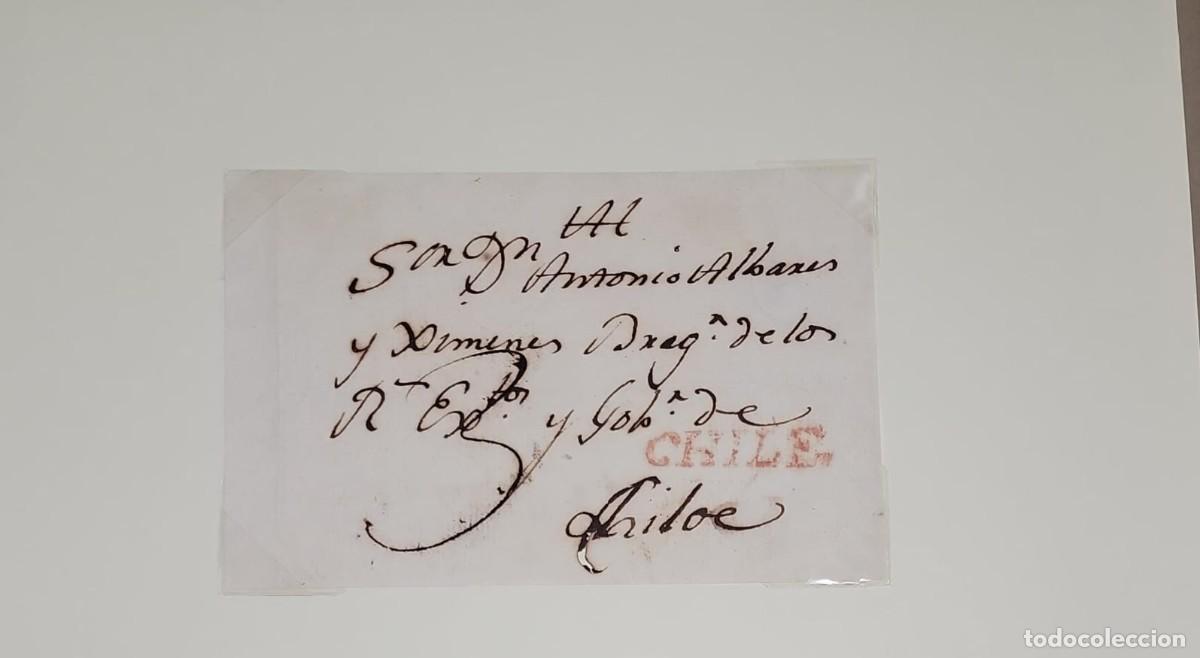 Al
Sor Dn Antonio Albares
y Ximenes Brag.r de los
Rs Extos y Gobr. de
CHILE
Chiloe
todocoleccion